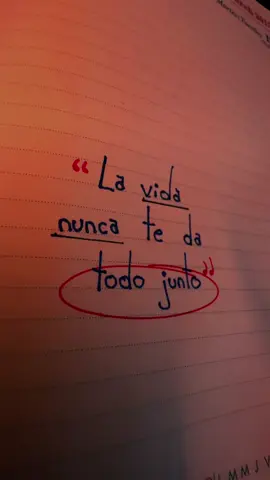 “La vida
nunca te da
todo junto”